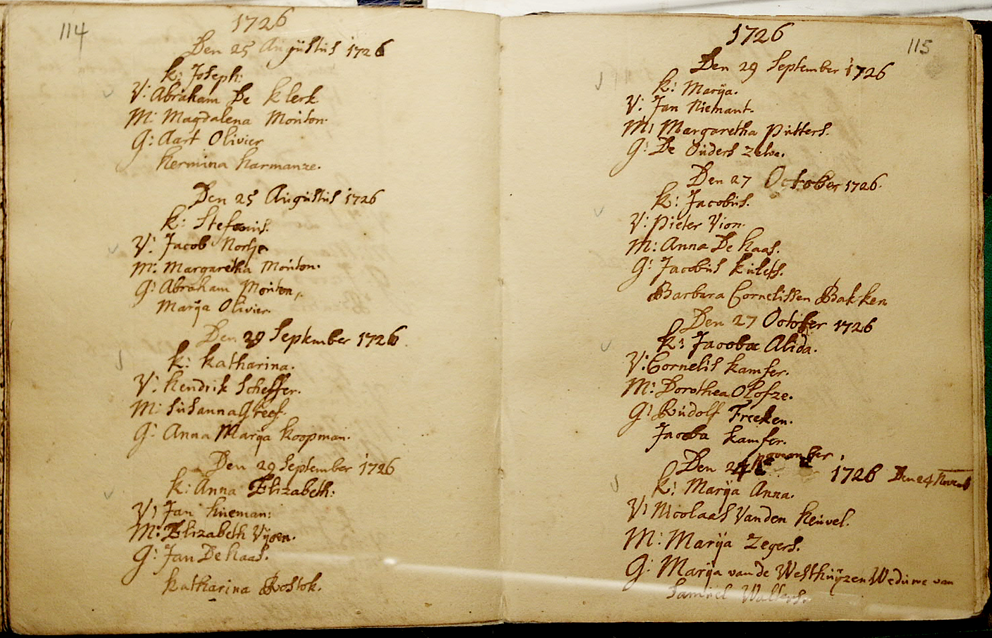 114
1726
Den 25 Augustus 1726
k: Joseph:
V: Abraham De klerk
M: Magdalena Mouton.
G: Aart Olivier
hermina harmanze.
Den 25 Augustus 1726
k: Stefanus.
V: Jacob Nortje
M: Margaretha Mouton.
G: Abraham Mouton,
Marÿa Olivier
Den 29 September 1726
k: katharina.
V: hendrik Scheffer.
M: Susanna Greef.
G: Anna Marÿa koopman.
Den 29 September 1726
k: Anna Elizabeth:
V: Jan
M: Elizabeth Vÿsen.
G: Jan De haas.
katharina Bostok.
115
1726
Den 29 September 1726
k: Marÿa.
V: Jan Niemant.
M: Margaretha putters.
G: De Ouders zelve.
Den 27 October 1726.
k: Jacobus.
V: pieter Vion.
M: Anna De haas.
G: Jacobus
Barbara Cornelissen Bakken
Den 27 October 1726
k: Jacoba Alida.
V: Cornelis kamfer.
M: Dorothea Olofze.
G: Rudolf Freeken.
Jacoba kamfer.
Den 24 november, 1726 Den 24
k: Marÿa Anna.
V: Nicolaas Vanden heuvel.
M: Marÿa Zegers.
G: Marÿa vande Westhuÿzen Weduwe van
Samuel Walters.